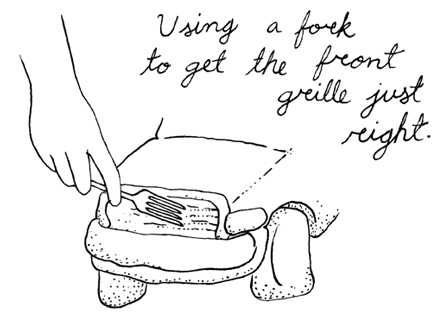 Using a fork
to get the front
grille just
right.